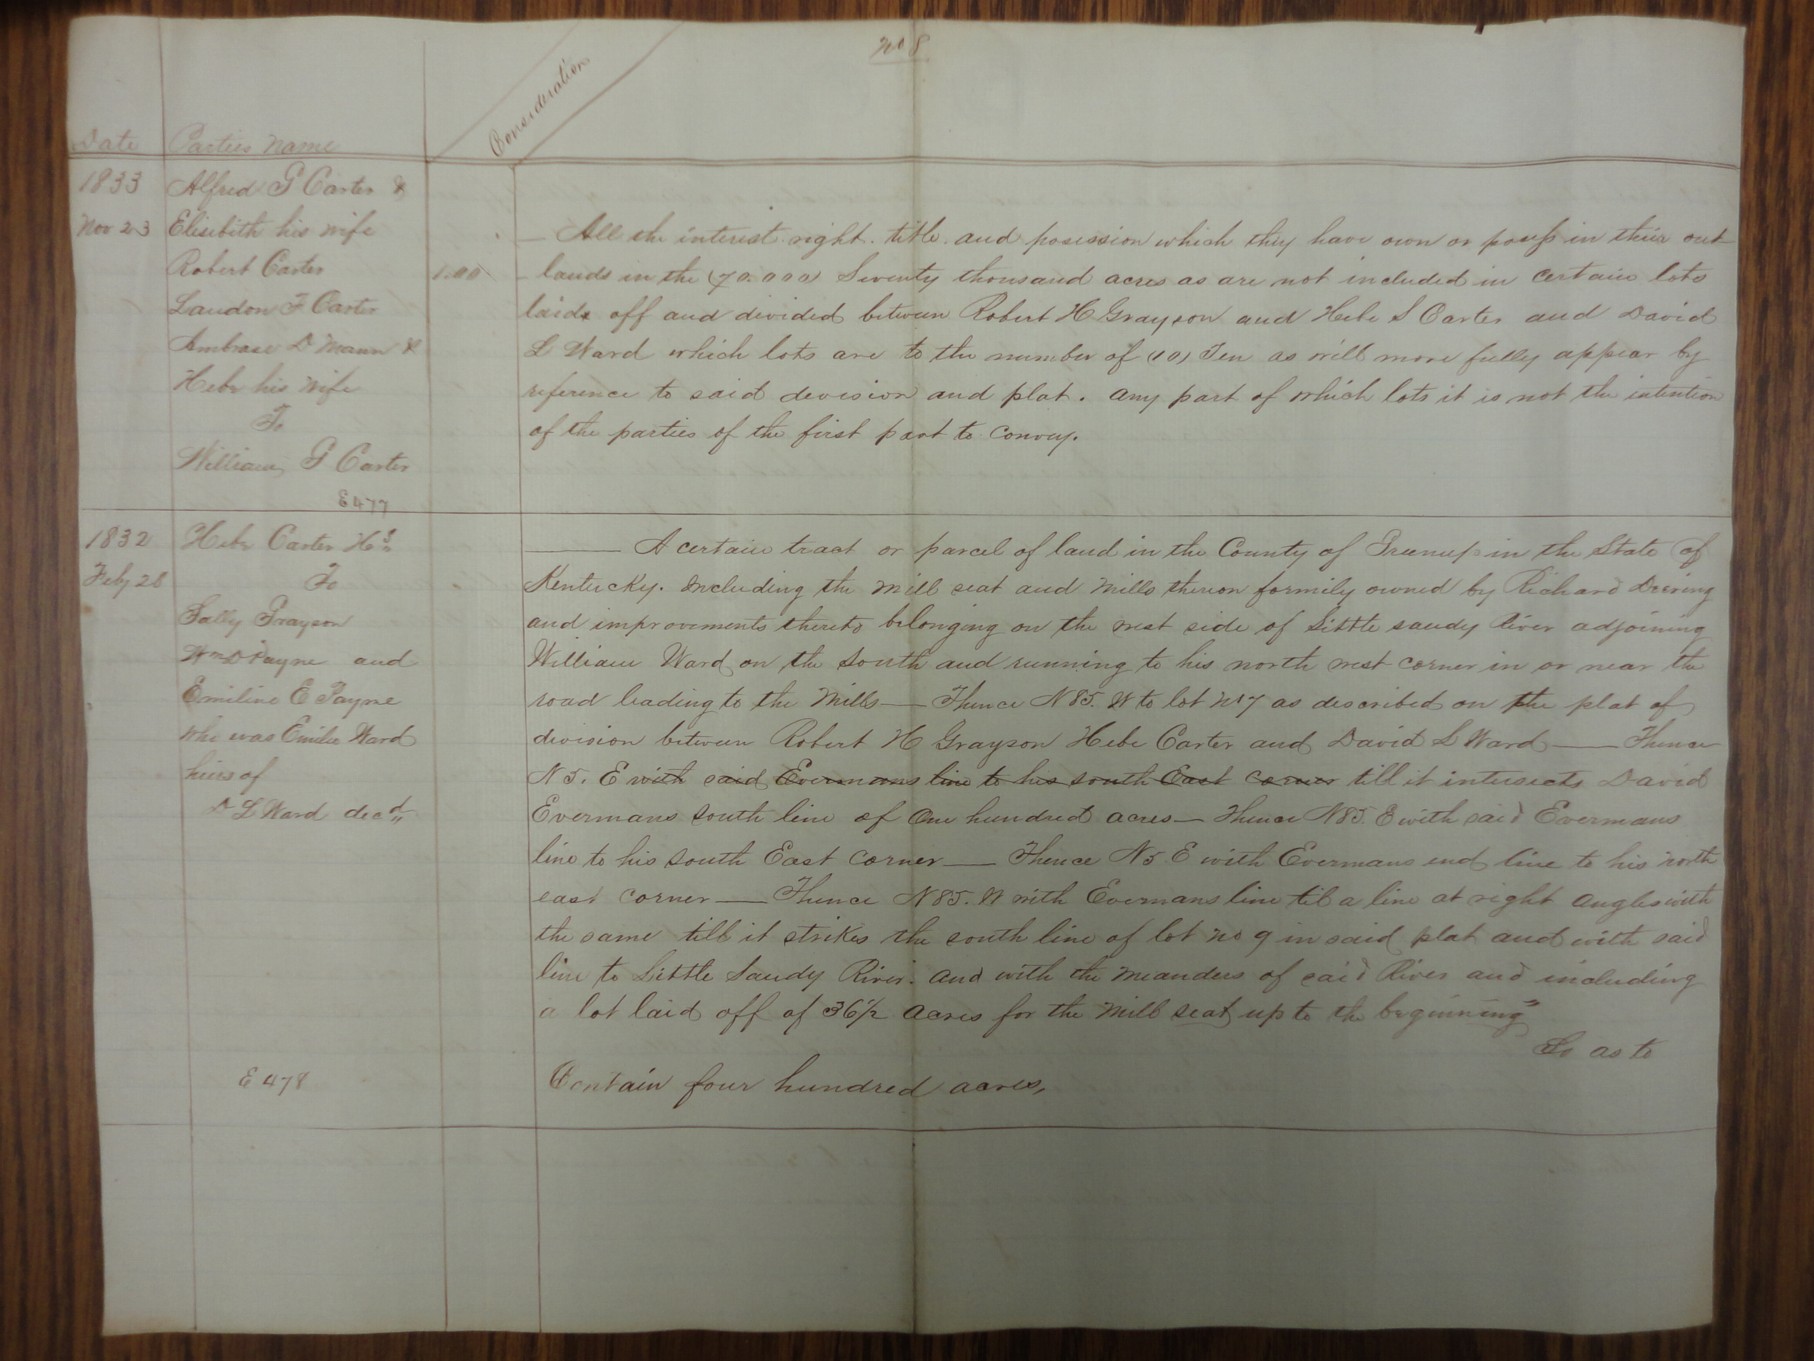 No 8
Consideration
Date
Parties Name
1833
Nov 23
Alfred G Carter &
Elisibith his wife
Robert Carter
Landon F Carter
Ambrose D Mann &
Hebe his wife
To
William G Carter
E 477
1.00
All the interist right. title and posession which they have own or possess in their out
lands in the (70.000) Seventy thousand acres as are not included in certain lots
laid off and divided between Robert H Grayson and Hebe S Carter and David
L Ward which lots are to the number of (10) Ten as will more fully appear by
reference to said devision and plat. any part of which lots it is not the intention
of the parties of the first part to convey.
1832
Feby 28
Hebe Carter Hrs
To
Sally Grayson
Wm D Payne and
Emiline E Payne
who was Emilie Ward
heirs of
D L Ward decd
E 478
A certain tract or parcel of land in the County of Greenup in the State of
Kentucky. including the mill seat and mills theron formily owned by Richard Deering
and improvements thereto belonging on the west side of Little sandy River adjoining
William Ward on the South and running to his north west corner in or near the
road leading to the Mills — Thence N 85. W to lot No 7 as described on the plat of
division between Robert H Grayson Hebe Carter and David L Ward — Thence
N 5. E with said Evermans line to his south East corner till it intersects David
Evermans south line of One hundred acres — Thence N 85. E with said Evermans
line to his south East corner — Thence N 5 E with Evermans end line to his north
east corner — Thence N 85. W with Evermans line til a line at right angles with
the same till it strikes the south line of lot No 9 in said plat and with said
line to Little Sandy River. and with the meanders of said River and including
a lot laid off of 36 1/2 acres for the Mill seat up to the beginning"
So as to
Contain four hundred acres,